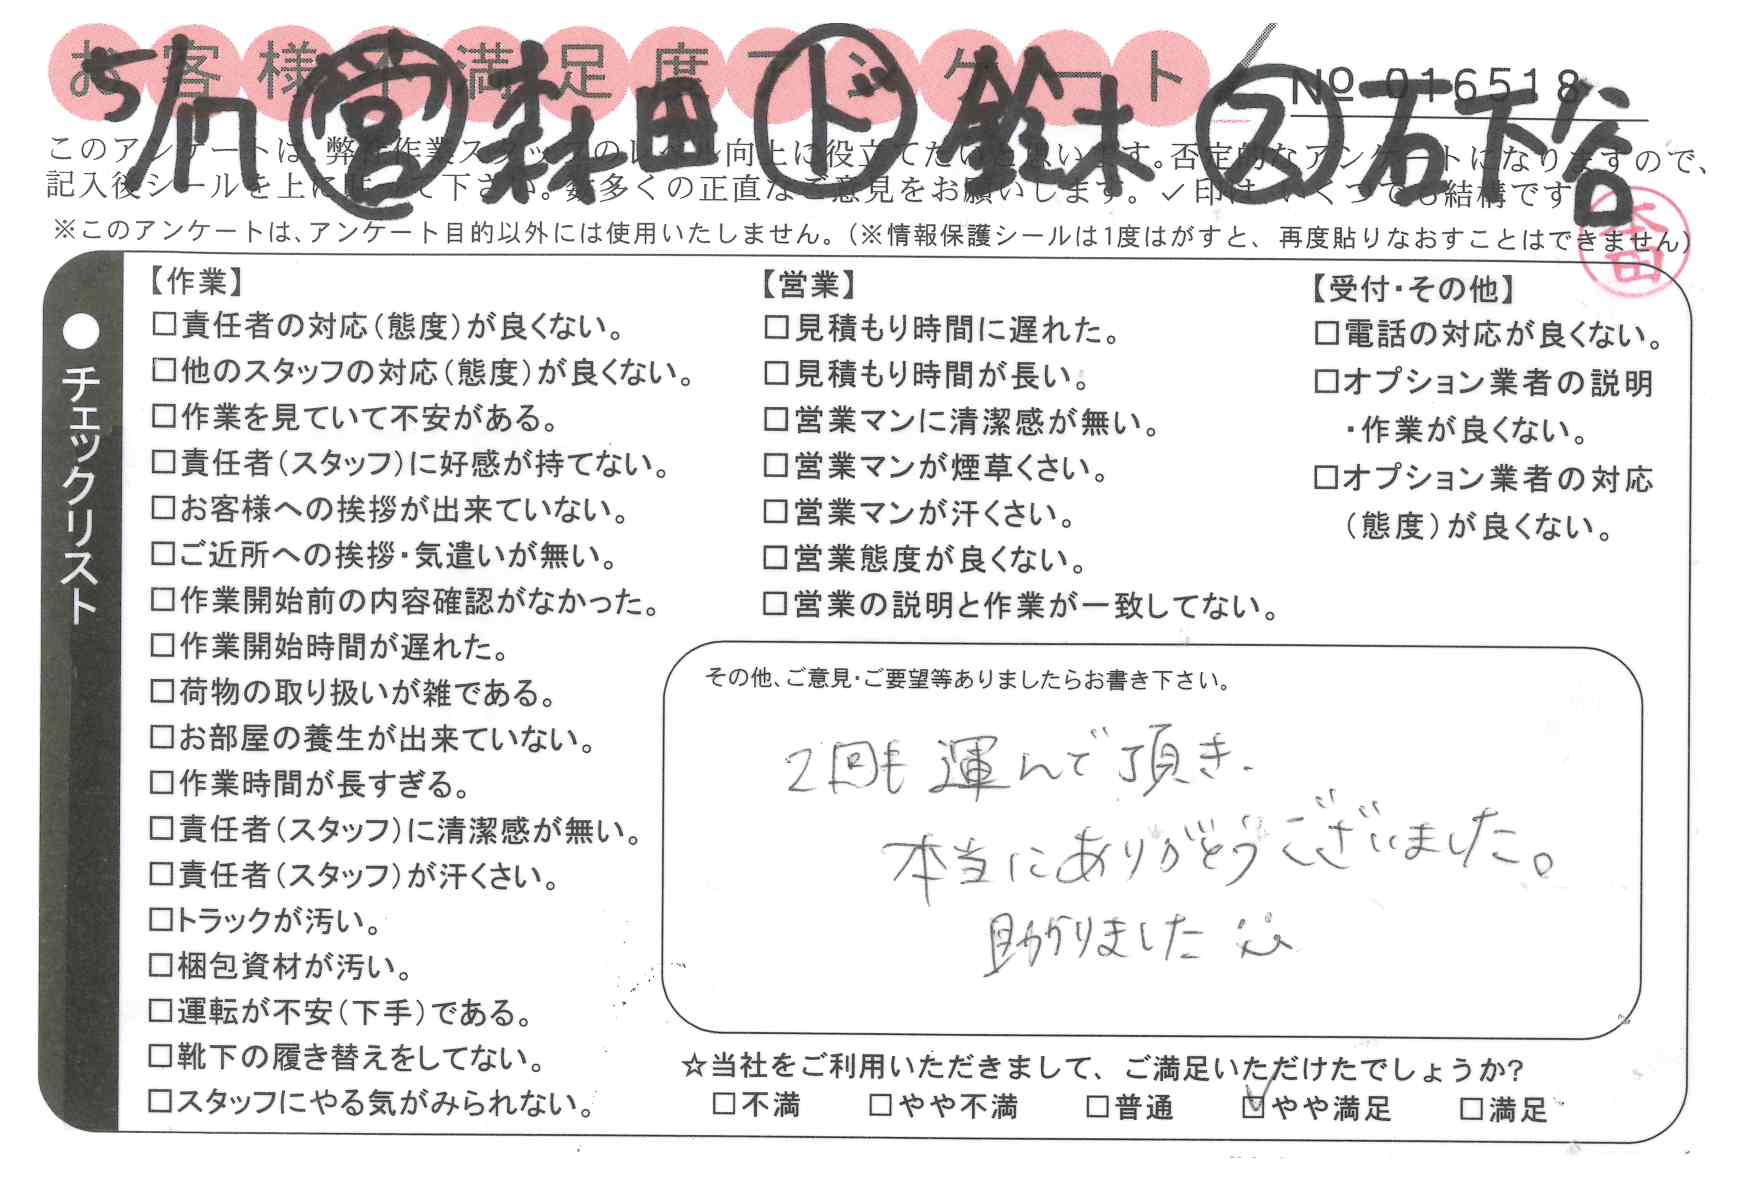 お客様不満足度アンケート
No 016518
5/17 営 森田 ド 鈴木 ス 石下谷
このアンケートは、弊社作業スタッフのレベル向上に役立てたいと思います。否定的なアンケートになりますので、
記入後シールを上に貼って下さい。数多くの正直なご意見をお願いします。✓印は、いくつでも結構です
※このアンケートは、アンケート目的以外には使用いたしません。(※情報保護シールは1度はがすと、再度貼りなおすことはできません)
●チェックリスト
【作業】
□責任者の対応(態度)が良くない。
□他のスタッフの対応(態度)が良くない。
□作業を見ていて不安がある。
□責任者(スタッフ)に好感が持てない。
□お客様への挨拶が出来ていない。
□ご近所への挨拶・気遣いが無い。
□作業開始前の内容確認がなかった。
□作業開始時間が遅れた。
□荷物の取り扱いが雑である。
□お部屋の養生が出来ていない。
□作業時間が長すぎる。
□責任者(スタッフ)に清潔感が無い。
□責任者(スタッフ)が汗くさい。
□トラックが汚い。
□梱包資材が汚い。
□運転が不安(下手)である。
□靴下の履き替えをしてない。
□スタッフにやる気がみられない。
【営業】
□見積もり時間に遅れた。
□見積もり時間が長い。
□営業マンに清潔感が無い。
□営業マンが煙草くさい。
□営業マンが汗くさい。
□営業態度が良くない。
□営業の説明と作業が一致してない。
【受付・その他】
□電話の対応が良くない。
□オプション業者の説明
・作業が良くない。
□オプション業者の対応
(態度)が良くない。
その他、ご意見・ご要望等ありましたらお書き下さい。
2回も運んで頂き、
本当にありがとうございました。
助かりました
☆当社をご利用いただきまして、ご満足いただけたでしょうか?
□不満 □やや不満 □普通 ☑やや満足 □満足